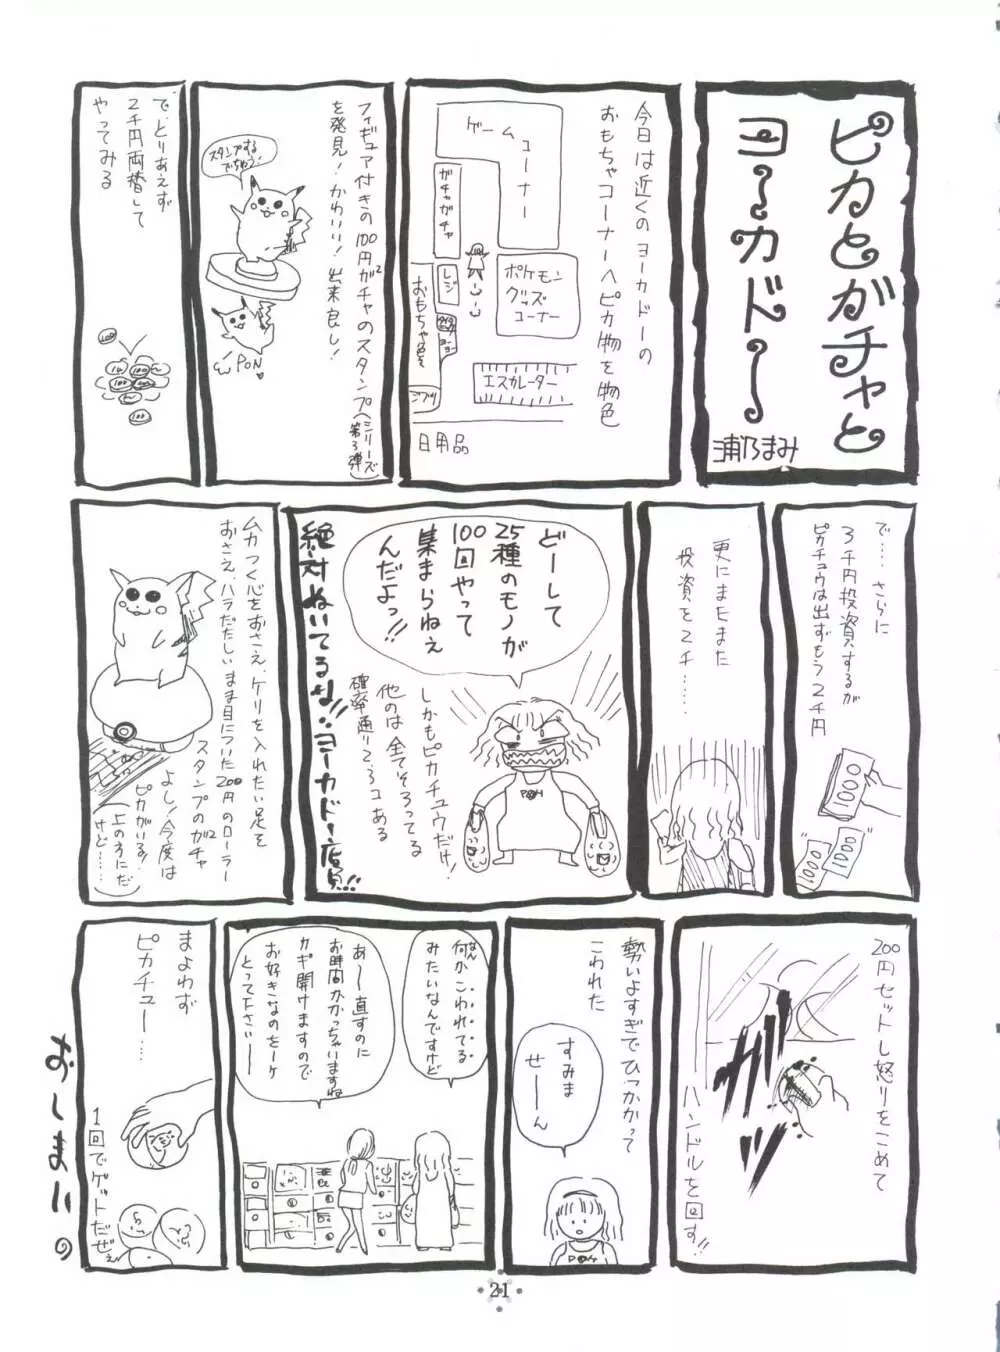 ピカとガチャと
ヨーカドー
浦乃まみ
今日は近くのヨーカドーの
おもちゃコーナーへピカ物を物色
ゲームコーナー
ガチャガチャ
レジ
ポケモン
グッズ
コーナー
おもちゃ色々
エスカレーター
日用品
フィギュア付きの100円ガチャのスタンプ(シリーズ第3弾)
を発見!かわいい!出来良し!
スタンプする
でちゅう!
PON
で、とりあえず
2千円両替して
やってみる
100
100
100
で‥‥さらに
3千円投資するが
ピカチュウは出ずもう2千円
1000
1000
1000
更にまたまた
投資を2千‥‥‥
どーして
25種のモノが
100回やって
集まらねえ
んだよっ!!
しかもピカチュウだけ!
他のは全てそろってる
確率通り2、3コある
絶対ねいてるな!!ヨーカドー店員!!
ムカつく心をおさえ、ケリを入れたい足を
おさえ、ハラだたしいまま目についた200円のローラー
スタンプのガチャ
よし!今度は
ピカがいる!
(上の方にだ
けど‥‥‥)
200円セットし怒りをこめて
ハンドルを回す!!
ガッ
勢いよすぎてひっかかって
こわれた
すみま
せーん
何かこわれてる
なん
みたいなんですけど
あー直すのに
お時間かかっちゃいますね
カギ開けますので
お好きなのをーケ
とって下さいー
まよわず
ピカチュー‥‥
1回でゲットだぜぇ
おしまい。
21